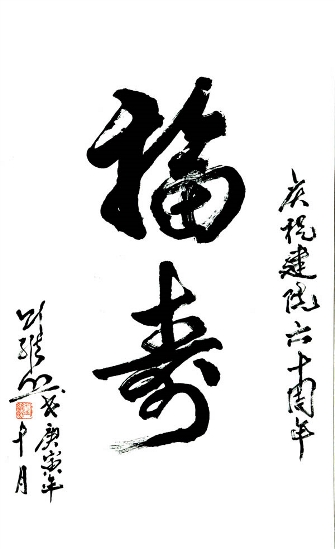 庆祝建院六十周年
福寿
庚寅年
十月